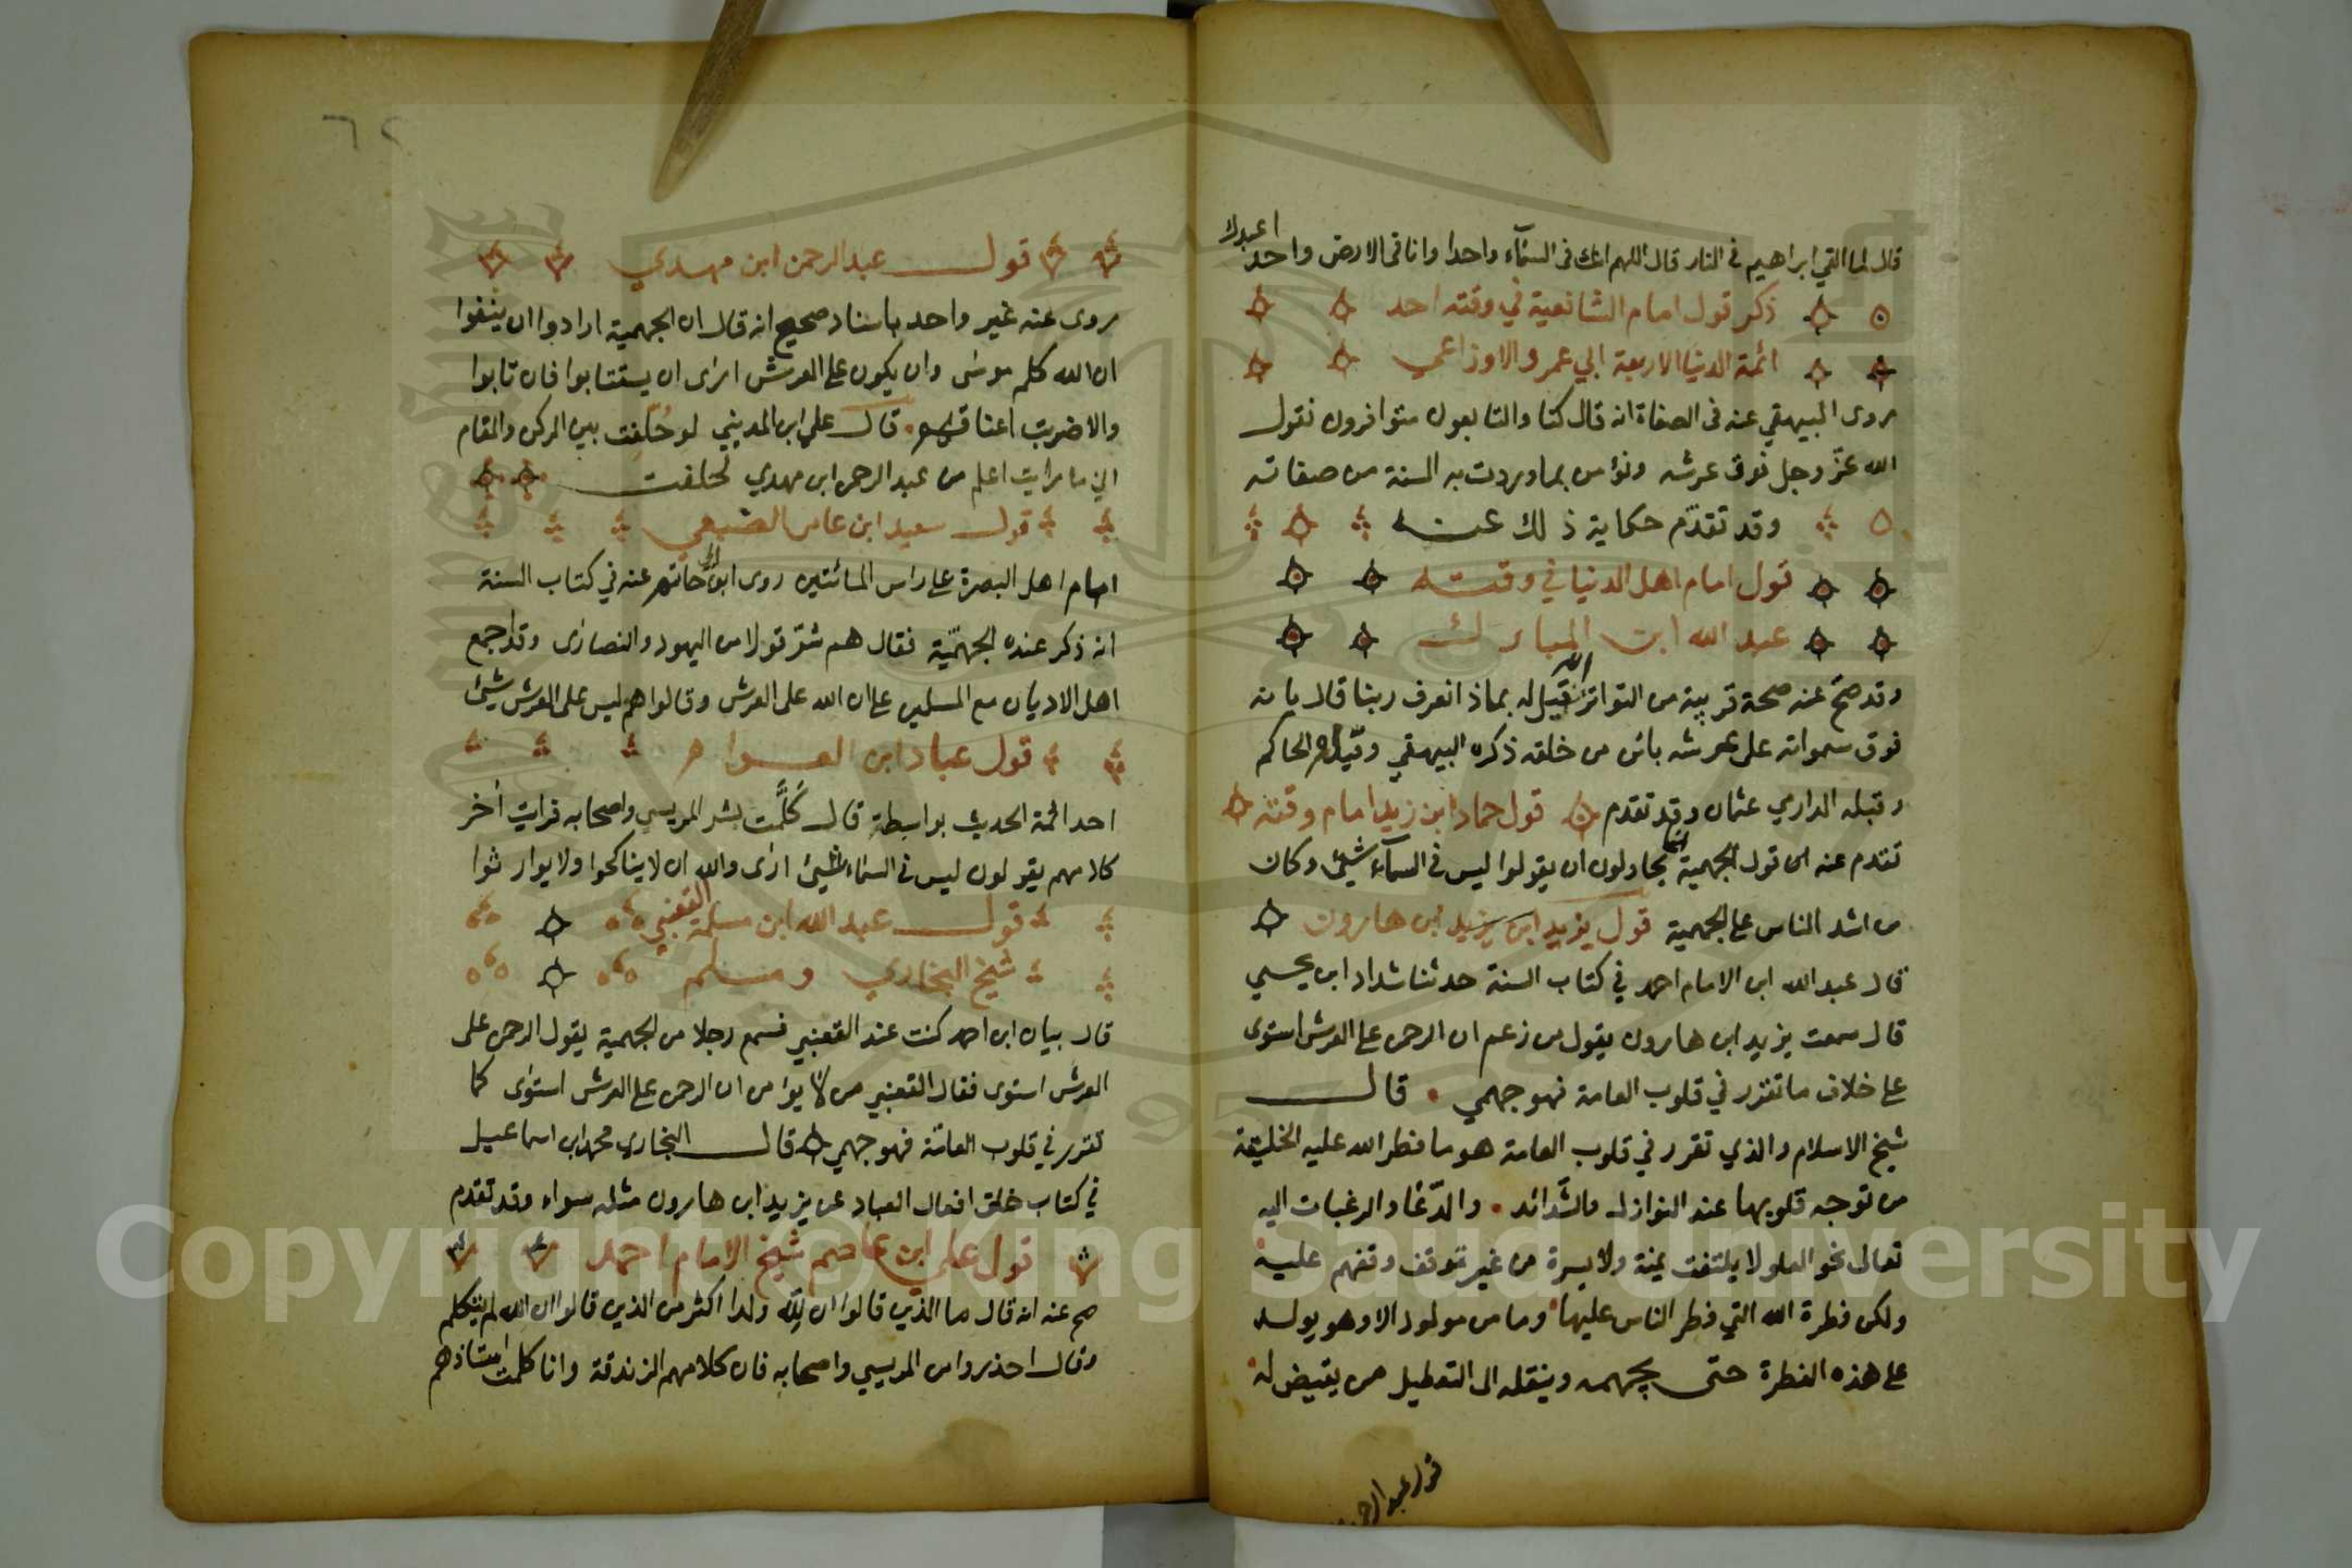 قال لما القي ابراهيم في النار قال اللهم انك في السمآء واحدا وانا في الارض واحد اعبدك
ذكر قول امام الشافعية في وقته احد
ائمة الدنيا الاربعة ابي عمرو الاوزاعي
روى البيهقي عنه في الصفاة انه قال كنا والتابعون متوافرون نقول
الله عزّ وجل فوق عرشه ونؤمن بما وردت به السنة من صفاته
وقد تقدّم حكاية ذلك عنه
قول امام اهل الدنيا في وقته
عبد الله ابن المبارك
وقد صحّ عنه صحة قريبة من التواتر انه قيل له بماذا نعرف ربنا قال بانه
فوق سمواته على عرشه بائن من خلقه ذكره البيهقي وقبله الحاكم
وقبله الدارمي عثمان وقد تقدم قول حماد ابن زيد امام وقته
تقدم عنه ان قول الجهمية انما يحاولون ان يقولوا ليس في السمآء شيئ وكان
من اشد الناس على الجهمية قول يزيد ابن يزيد ابن هارون
قال عبد الله ابن الامام احمد في كتاب السنة حدثنا شداد ابن يحيي
قال سمعت يزيد ابن هارون يقول من زعم ان الرحمن على العرش استوى
على خلاف ما تقرر في قلوب العامة فهو جهمي . قال
شيخ الاسلام والذي تقرر في قلوب العامة هو ما فطر الله عليه الخليقة
من توجه قلوبها عند النوازل والشّدائد . والدّعا والرغبات اليه
تعالى نحو العلو لا يلتفت يمنة ولا يسرة من غير توقف وقفهم عليه
ولكن فطرة الله التي فطر الناس عليها وما من مولود الا وهو يولد
على هذه الفطرة حتى يجهمه وينقله الى التعطيل من يقيض له
قول عبد الرحمن
٦٢
قول عبد الرحمن ابن مهدي
روى عنه غير واحد باسناد صحيح انه قال ان الجهمية ارادوا ان ينفوا
ان الله كلم موسى وان يكون على العرش ارى ان يستتابوا فان تابوا
والا ضربت اعناقهم . قال علي ابن المديني لو حُلّفت بين الركن والمقام
اني ما رايت اعلم من عبد الرحمن ابن مهدي لحلفت
قول سعيد ابن عامر الضبعي
امام اهل البصرة على راس المائتين روى ابن ابي حاتم عنه في كتاب السنة
انه ذكر عنده الجهميّة فقال هم شرّ قولا من اليهود والنصارى وقد اجمع
اهل الاديان مع المسلمين على ان الله على العرش وقالوا هم ليس على العرش شيئ
قول عباد ابن العوام
احد ائمة الحديث بواسطة قال كلّمت بشر المريسي واصحابه فرايت اخر
كلامهم يقولون ليس في السماء شيئ ارى والله ان لا يناكحوا ولا يوارثوا
قول عبد الله ابن مسلمة القعنبي
شيخ البخاري ومسلم
قال بيان ابن احمد كنت عند القعنبي فسمع رجلا من الجهمية يقول الرحمن على
العرش استوى فقال القعنبي من لا يؤمن ان الرحمن على العرش استوى كما
تقرر في قلوب العامّة فهو جهمي قال البخاري محمد ابن اسماعيل
في كتاب خلق افعال العباد عن يزيد ابن هارون مثله سواء وقد تقدم
قول علي ابن عاصم شيخ الامام احمد
صح عنه انه قال ما الذين قالوا ان لله ولدا اكثر من الذين قالوا ان الله لم يتكلم
وقال احذروا من المريسي واصحابه فان كلامهم الزندقة وانا كلمت استاذهم
Copyright © King Saud University